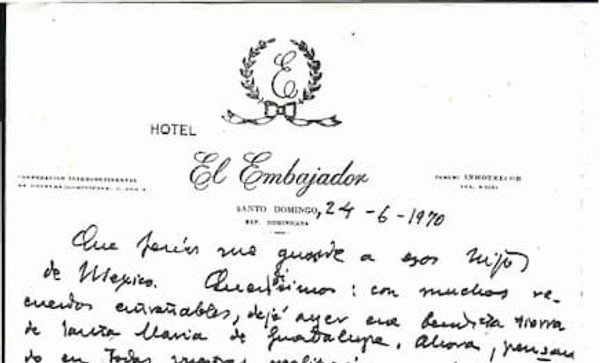 E
HOTEL
El Embajador
CORPORACION INTERCONTINENTAL
CABLE: INHOTELCOR
SANTO DOMINGO, 24-6-1970
REP. DOMINICANA
Que Jesús me guarde a esos hijos
de Mexico. Queridísimos: con muchos re-
cuerdos entrañables, dejé ayer esa bendita tierra
de Santa Maria de Guadalupe. Ahora, pensan
do en todas